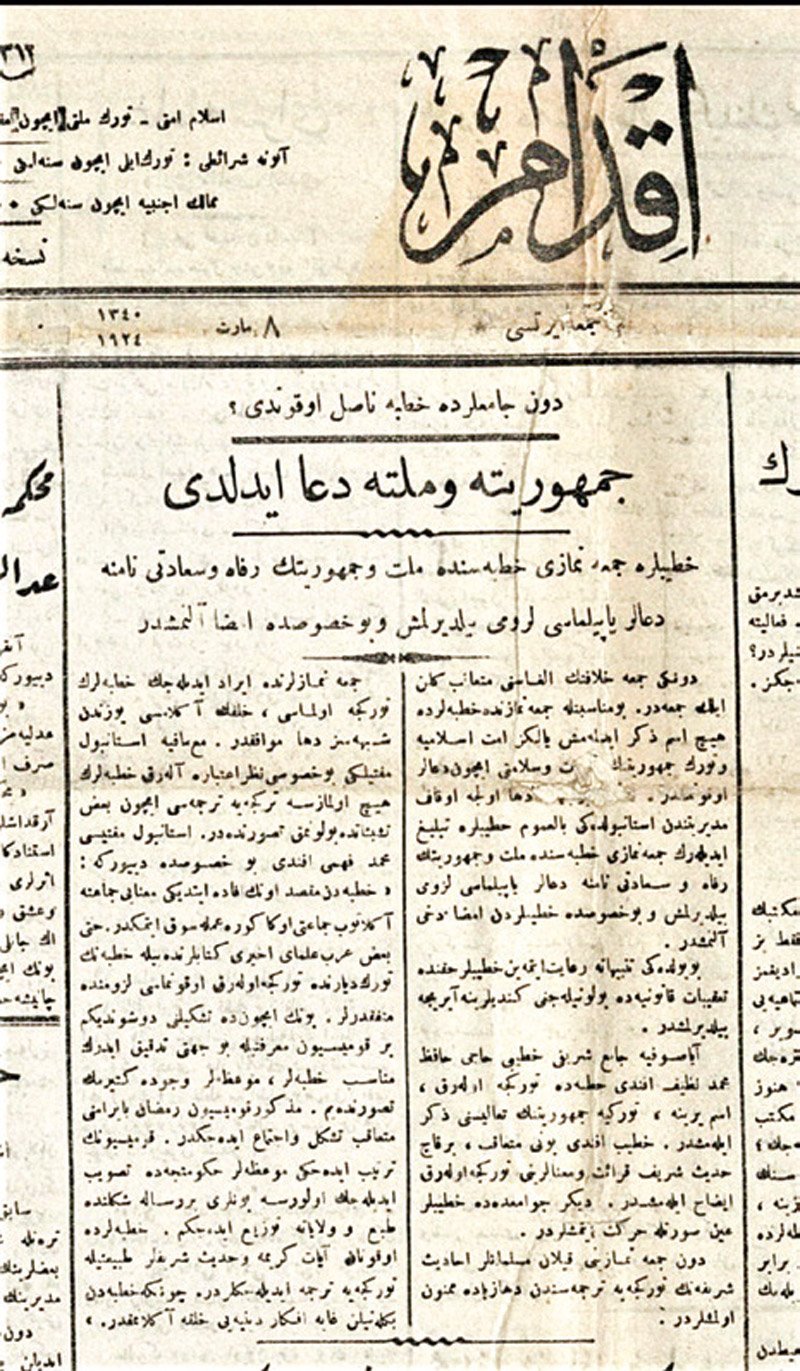 اقدام
اسلام امتى ـ تورك ملتى ايچون
آبونه شرائطى : تورك ايلى ايچون سنه‌لكى
ممالك اجنبيه ايچون سنه‌لكى
نسخه
جمعه ايرتسى
٨ مارت
١٣٤٠
١٩٢٤
دون جامعلرده خطبه ناصل اوقوندى ؟
جمهوريته و ملته دعا ايدلدى
خطيبلره جمعه نمازى خطبه‌سنده ملت و جمهوريتك رفاه و سعادتى نامنه
دعالر ياپيلماسى لزومى بيلديرلمش و بو خصوصده امضا آلنمشدر
دونكى جمعه خلافتك الغاسنى متعاقب كلن
ايلك جمعه‌در . بو مناسبتله جمعه نمازنده خطبه‌لرده
هيچ اسم ذكر ايدلمه‌مش يالكز امت اسلاميه
و تورك جمهوريتنك وسلامتى ايچون دعالر
اوقونمشدر . دها اولجه اوقاف
مديريتندن استانبولده‌كى بالعموم خطيبلره تبليغ
ايديله‌رك جمعه نمازى خطبه‌سنده ملت و جمهوريتك
رفاه و سعادتى نامنه دعالر ياپيلماسى لزومى
بيلديرلمش و بو خصوصده خطيبلردن امضا دخى
آلنمشدر .
بو يولده‌كى تنبيهاته رعايت ايتمه‌ين خطيبلر حقنده
تعقيبات قانونيه‌ده بولونيله‌جغى كنديلرينه آيريجه
بيلديرلمشدر .
آياصوفيه جامع شريفى خطيبى حاجى حافظ
محمد نظيف افندى خطبه‌ده توركجه اوله‌رق ،
اسم يرينه ، توركيه جمهوريتنك تعاليسنى ذكر
ايله‌مشدر . خطيب افندى بونى متعاقب ، برقاچ
حديث شريف قرائت و معنالرينى توركجه اوله‌رق
ايضاح ايله‌مشدر . ديكر جوامعده‌ده خطيبلر
عين صورتله حركت ايتمشلردر .
دون جمعه نمازينى قيلان مسلمانلر احاديث
شريفه‌نك توركجه‌يه ترجمه‌سندن دها زياده ممنون
اولمشلردر .
جمعه نمازلرنده ايراد ايديله‌جك خطبه‌لرك
توركجه اولماسى ، خلقك آكلامسى يوزندن
شبهه‌سز دها موافقدر . مع مافيه استانبول
مفتيلكى بو خصوصى نظر اعتباره آله‌رق خطبه‌لرك
هيچ اولمازسه تركجه‌يه ترجمه‌سى ايچون بعض
تشبثاتده بولونمق تصورنده‌در . استانبول مفتيسى
محمد فهمى افندى بو خصوصده دييوركه :
« خطبه‌دن مقصد اونك افاده ايتديكى معنايى جماعته
آكلاتوب جماعتى اوكا كوره عمله سوق ايتمكدر . حتى
بعض عرب علماى اخيرى كتابلرنده بيله خطبه‌نك
تورك ديارنده توركجه اوله‌رق اوقونماسى لزومنده
متفقدرلر . بونك ايچون‌ده تشكيلنى دوشونديكم
بر قوميسيون معرفتيله بو جهتى تدقيق ايدرك
مناسب خطبه‌لر ، موعظه‌لر وجوده كتيرمك
تصورنده‌يم . مذكور قوميسيون رمضان بايرامنى
متعاقب تشكل و اجتماع ايده‌جكدر . قوميسيونك
ترتيب ايده‌جكى موعظه‌لر حكومتجه‌ده تصويب
ايديله‌جك اولورسه بونلرى بر رساله شكلنده
طبع و ولاياته توزيع ايده‌جكم . خطبه‌لرده
اوقونان آيات كريمه و حديث شريفلر طبيعتيله
توركجه‌يه ترجمه ايديله‌جكلردر . چونكه خطبه‌دن
بكله‌نيلن غايه افكار دينيه‌يى خلقه آكلاتمقدر . »